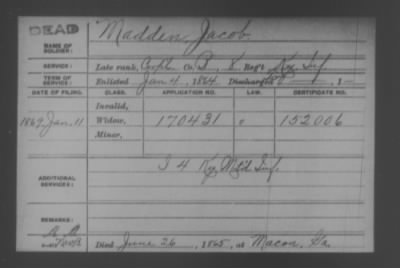 DEAD
Madden, Jacob.
NAME OF SOLDIER:
SERVICE:
Late rank, Corpl Co. B, 8 Reg't Ky. Inf
TERM OF SERVICE:
Enlisted Jan 4, 1864 Discharged
DATE OF FILING. CLASS. APPLICATION NO. LAW. CERTIFICATE NO.
Invalid,
1869 Jan. 11 Widow, 170431 152006
Minor,
ADDITIONAL SERVICES:
I 4 Ky. Mtd Inf.
REMARKS:
Died June 26, 1865, at Macon, Ga